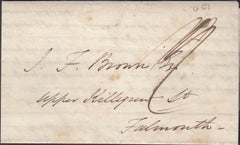 J. F. Brown Esq
Upper Killigrew St
Falmouth